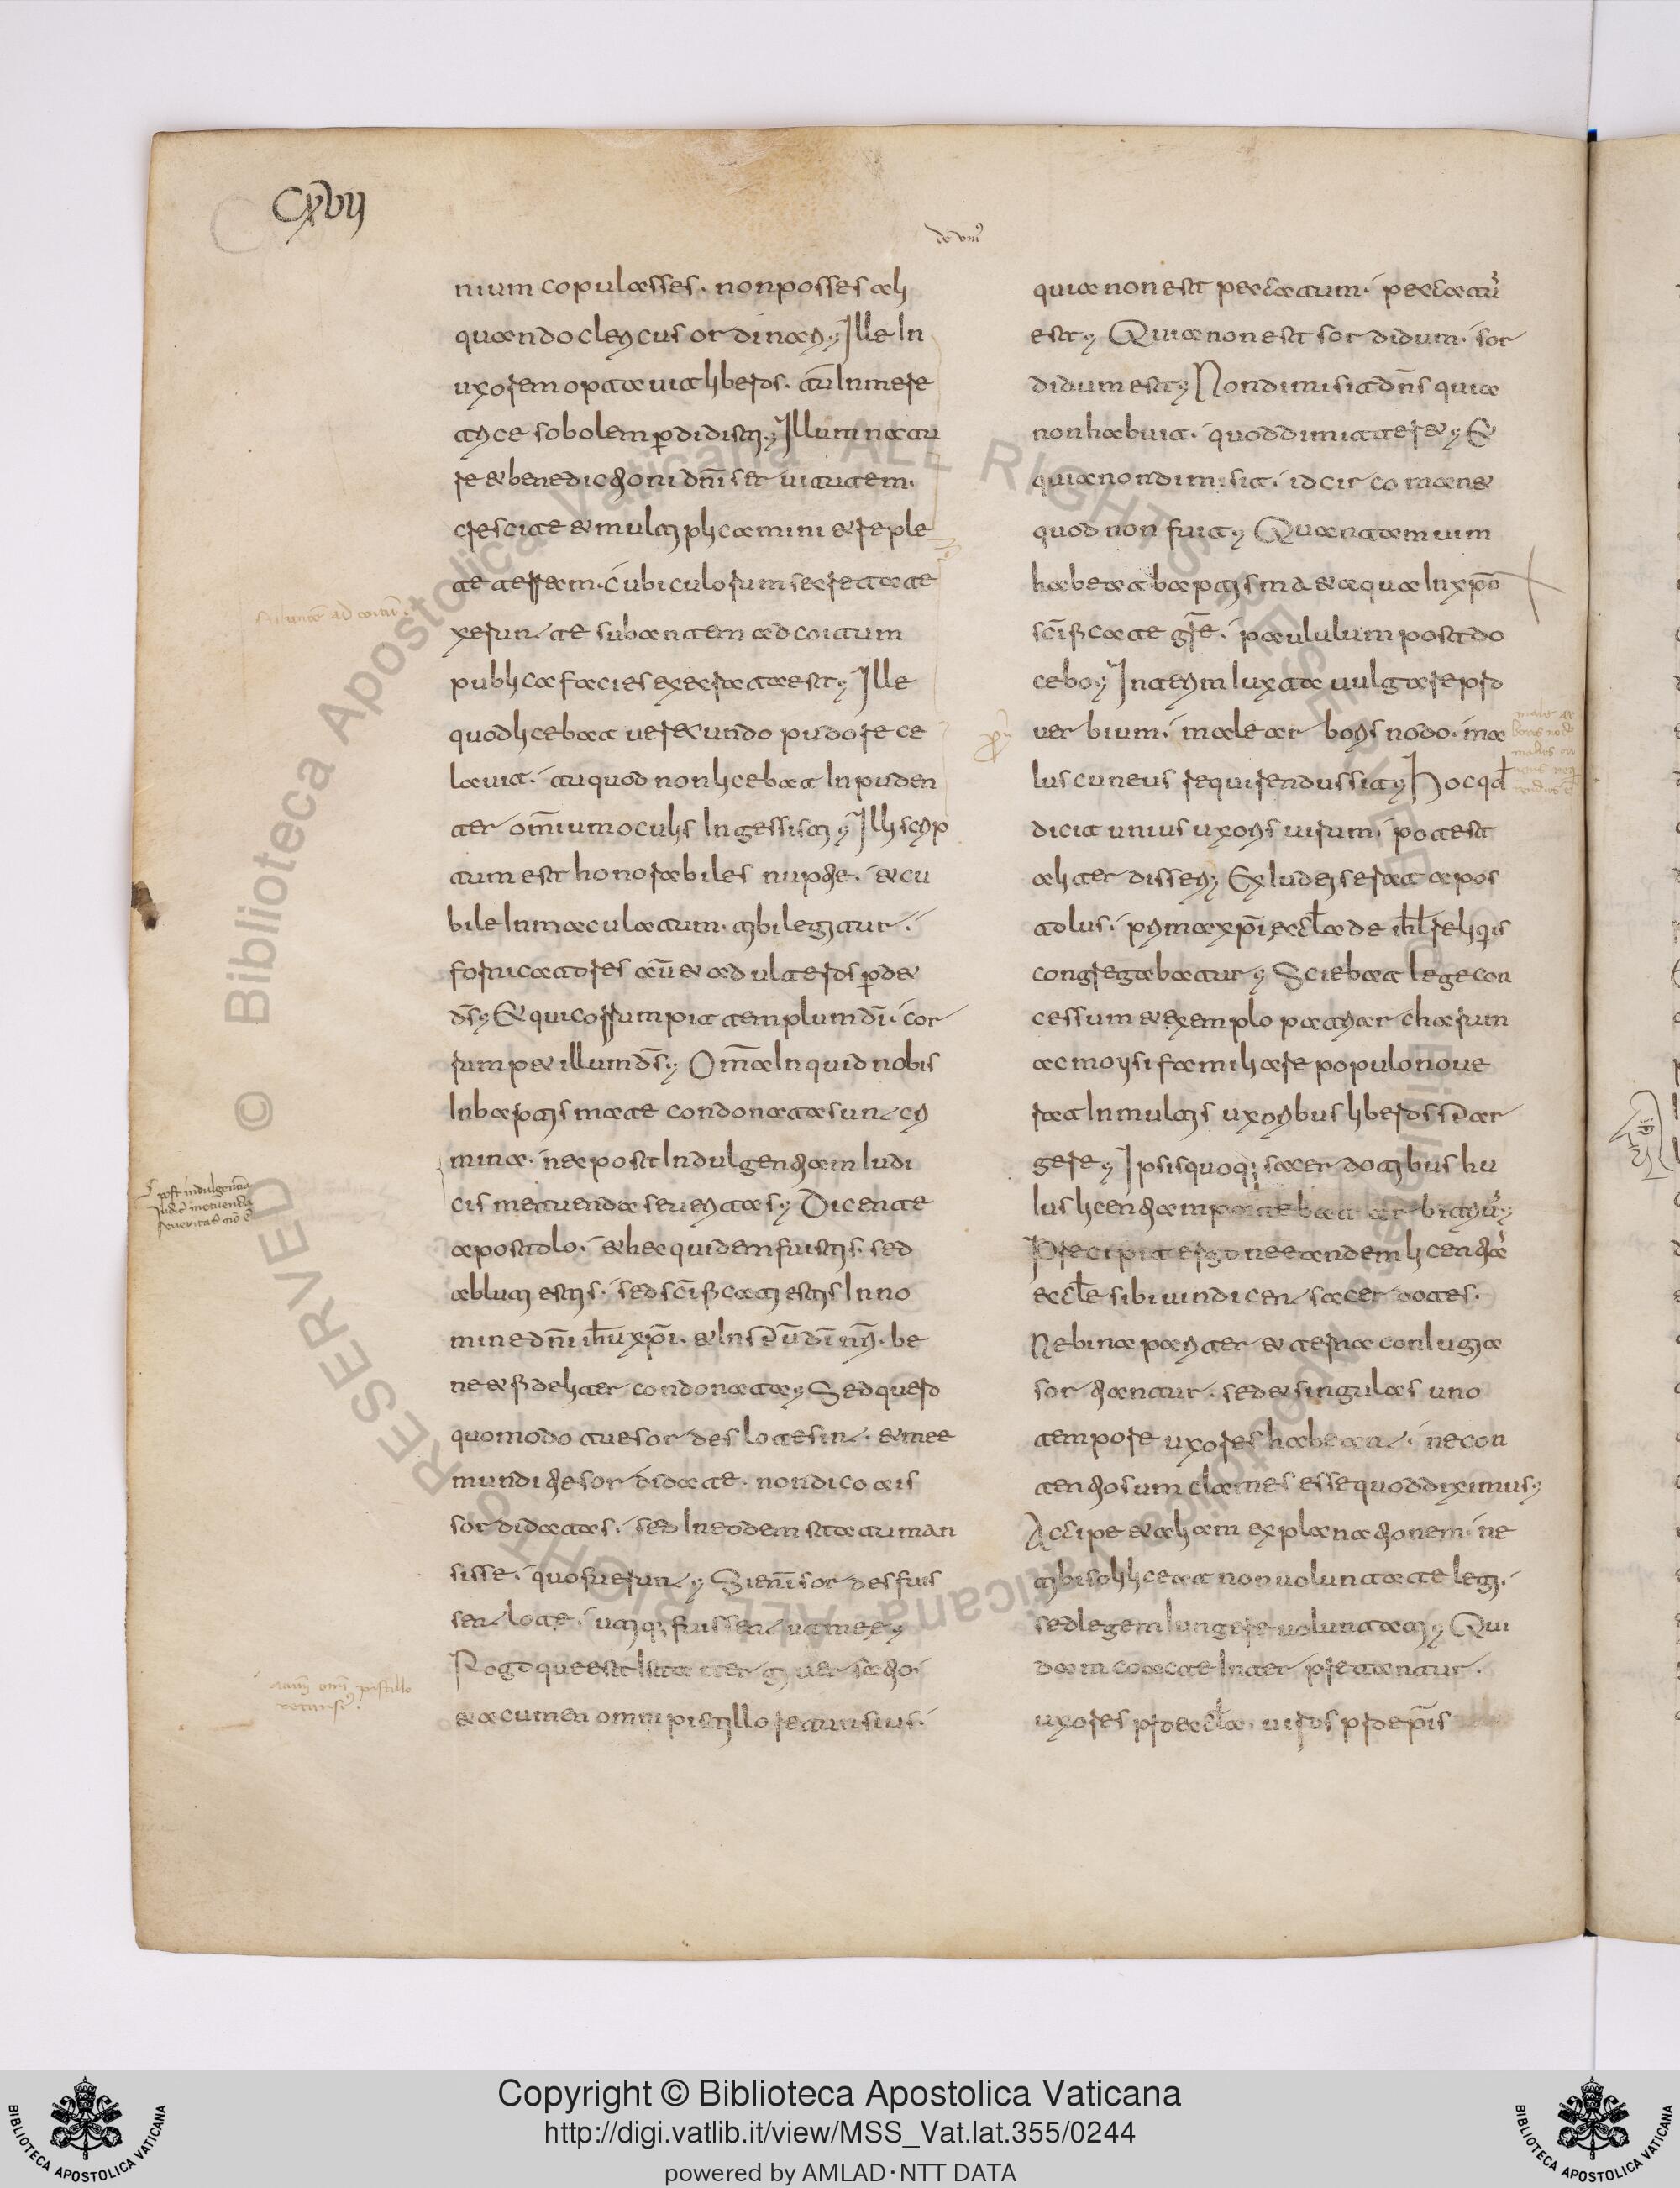 CXVII
de vni9
nium copulasses. non posses ali
quando clericus ordinari; Ille in
uxorem optauit liberos. tū in mere
trice sobolem p̄didisti; Illum natu
re et benedictioni dn̄i seruitutem.
crescite et multiplicamini et reple
te terram. cubiculorum secreta te
xerunt te subantem ad coitum
publica facies execrata est; Ille
quod licebat uerecundo pudore ce
lauit. tu quod non licebat inpuden
ter om̄ium oculis ingessisti; Illi scrip
tum est honorabiles nuptie. et cu
bile inmaculatum. tibi legitur.
fornicatores aūt et adulteros p̄det
d̄s; Et qui corrumpit templum dī. cor
rumpet illum d̄s; Om̄a inquid nobis
in baptismate condonata sunt cri
mina. nec post indulgentiam iudi
cis metuenda seueritas; Dicente
apostolo. et hec quidem fuistis. sed
abluti estis. sed sc̄ificati estis in no
mine dn̄i ih̄u xp̄i. et in sp̄u dī nr̄i. be
ne et fideliter condonata; Sed quero
quomodo tue sordes lote sint. et mee
munditie sordidate. non dico ais
sordidatas. sed in eodem statu man
sisse. quo fuerunt; Si enī sordes fuis
sent lote. utiq; fuissent ut mee;
Rogo que est ista tergiuersatio.
et acumen omni pistillo retunsius.
quia non est peccatum. peccatū
est; Quia non est sordidum. sor
didum est; Non dimisit dn̄s quia
non habuit. quod dimitteret; Et
quia non dimisit. idcirco manet
quod non fuit; Quantam uim
habeat baptisma et aqua in xp̄o
sc̄ificate gr̄e. paululum post do
cebo; Interim iuxta uulgare pro
uerbium. male arboris nodo. ma
lus cuneus requirendus sit; Hoc qd̄
dicit unius uxoris uirum. potest
aliter disseri; Ex iudeis erat apos
tolus. prima xp̄i eccl̄a de isrl̄ reliquis
congregabatur; Sciebat lege con
cessum et exemplo patriarcharum
ac moysi familiare populo noue
rat in multis uxoribus liberos spar
gere; Ipsis quoq; sacerdotibus hu
ius licentiam patebat arbitriū;
Precipit ergo ne eandem licentiā
eccl̄e sibi uindicent sacerdotes.
Ne bina pariter et terna coniugia
sortiantur. sed et singulas uno
tempore uxores habeant. ne con
tentiosum clames esse quod diximus;
Accipe et aliam explanationem. ne
tibi soli liceat non uoluntate legi.
sed legem iungere uoluntati; Qui
dam coacte interpretantur.
uxores pro eccl̄a. uiros pro ep̄is
subantē ad coitū.
post indulgentiā
Judic̄ metuenda
seueritas nō ē
acum̄ om̄i pistillo
retunsi9.